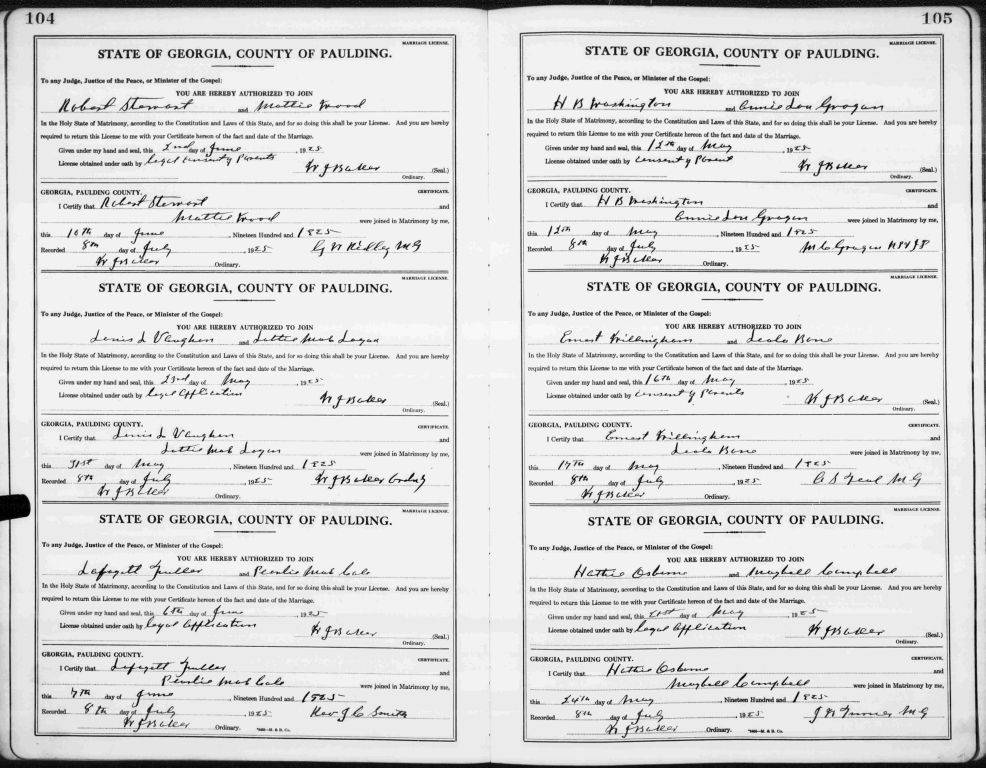 104
MARRIAGE LICENSE.
STATE OF GEORGIA, COUNTY OF PAULDING.
To any Judge, Justice of the Peace, or Minister of the Gospel:
YOU ARE HEREBY AUTHORIZED TO JOIN
Robert Stewart and Mattie Wood
In the Holy State of Matrimony, according to the Constitution and Laws of this State, and for so doing this shall be your License. And you are hereby
required to return this License to me with your Certificate hereon of the fact and date of the Marriage.
Given under my hand and seal, this 2nd day of June, 1925
License obtained under oath by legal consent of Parents
W J Baker (Seal.)
Ordinary.
GEORGIA, PAULDING COUNTY. CERTIFICATE.
I Certify that Robert Stewart and
Mattie Wood were joined in Matrimony by me,
this 10th day of June, Nineteen Hundred and 1925
Recorded 8th day of July, 1925 G W Ridley M G
W J Baker Ordinary.
MARRIAGE LICENSE.
STATE OF GEORGIA, COUNTY OF PAULDING.
To any Judge, Justice of the Peace, or Minister of the Gospel:
YOU ARE HEREBY AUTHORIZED TO JOIN
Lewis L Vaughen and Lottie Mab Logan
In the Holy State of Matrimony, according to the Constitution and Laws of this State, and for so doing this shall be your License. And you are hereby
required to return this License to me with your Certificate hereon of the fact and date of the Marriage.
Given under my hand and seal, this 23rd day of May, 1925
License obtained under oath by legal Application
W J Baker (Seal.)
Ordinary.
GEORGIA, PAULDING COUNTY. CERTIFICATE.
I Certify that Lewis L Vaughen and
Lottie Mab Logan were joined in Matrimony by me,
this 31st day of May, Nineteen Hundred and 1925
Recorded 8th day of July, 1925 W J Baker Ordny
W J Baker Ordinary.
MARRIAGE LICENSE.
STATE OF GEORGIA, COUNTY OF PAULDING.
To any Judge, Justice of the Peace, or Minister of the Gospel:
YOU ARE HEREBY AUTHORIZED TO JOIN
Lafayett Fuller and Pearlie Mab Cole
In the Holy State of Matrimony, according to the Constitution and Laws of this State, and for so doing this shall be your License. And you are hereby
required to return this License to me with your Certificate hereon of the fact and date of the Marriage.
Given under my hand and seal, this 6th day of June, 1925
License obtained under oath by legal Application
W J Baker (Seal.)
Ordinary.
GEORGIA, PAULDING COUNTY. CERTIFICATE.
I Certify that Lafayett Fuller and
Pearlie Mab Cole were joined in Matrimony by me,
this 7th day of June, Nineteen Hundred and 1925
Recorded 8th day of July, 1925 Rev J C Smith
W J Baker Ordinary.
105
MARRIAGE LICENSE.
STATE OF GEORGIA, COUNTY OF PAULDING.
To any Judge, Justice of the Peace, or Minister of the Gospel:
YOU ARE HEREBY AUTHORIZED TO JOIN
H B Washington and Annie Lou Grogan
In the Holy State of Matrimony, according to the Constitution and Laws of this State, and for so doing this shall be your License. And you are hereby
required to return this License to me with your Certificate hereon of the fact and date of the Marriage.
Given under my hand and seal, this 12th day of May, 1925
License obtained under oath by Consent of Parent
W J Baker (Seal.)
Ordinary.
GEORGIA, PAULDING COUNTY. CERTIFICATE.
I Certify that H B Washington and
Annie Lou Grogan were joined in Matrimony by me,
this 12th day of May, Nineteen Hundred and 1925
Recorded 8th day of July, 1925 M C Grogan
W J Baker Ordinary.
MARRIAGE LICENSE.
STATE OF GEORGIA, COUNTY OF PAULDING.
To any Judge, Justice of the Peace, or Minister of the Gospel:
YOU ARE HEREBY AUTHORIZED TO JOIN
Ernest Willingham and Leola Bone
In the Holy State of Matrimony, according to the Constitution and Laws of this State, and for so doing this shall be your License. And you are hereby
required to return this License to me with your Certificate hereon of the fact and date of the Marriage.
Given under my hand and seal, this 16th day of May, 1925
License obtained under oath by Consent of Parents
W J Baker (Seal.)
Ordinary.
GEORGIA, PAULDING COUNTY. CERTIFICATE.
I Certify that Ernest Willingham and
Leola Bone were joined in Matrimony by me,
this 17th day of May, Nineteen Hundred and 1925
Recorded 8th day of July, 1925 M G
W J Baker Ordinary.
MARRIAGE LICENSE.
STATE OF GEORGIA, COUNTY OF PAULDING.
To any Judge, Justice of the Peace, or Minister of the Gospel:
YOU ARE HEREBY AUTHORIZED TO JOIN
Hattie Osborne and Maybell Campbell
In the Holy State of Matrimony, according to the Constitution and Laws of this State, and for so doing this shall be your License. And you are hereby
required to return this License to me with your Certificate hereon of the fact and date of the Marriage.
Given under my hand and seal, this 21st day of May, 1925
License obtained under oath by legal Application
W J Baker (Seal.)
Ordinary.
GEORGIA, PAULDING COUNTY. CERTIFICATE.
I Certify that Hattie Osborne and
Maybell Campbell were joined in Matrimony by me,
this 24th day of May, Nineteen Hundred and 1925
Recorded 8th day of July, 1925 J W Turner M G
W J Baker Ordinary.